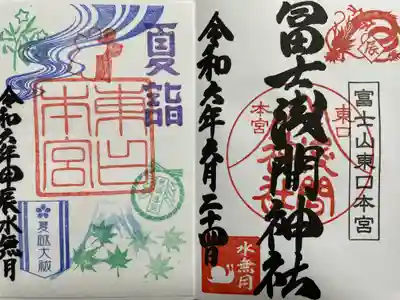 夏詣
東口
本宮
令和六年甲辰水無月
夏越大祓
辰
冨士浅間神社
富士山東口本宮
東口
本宮
令和六年六月二十四日
水無月